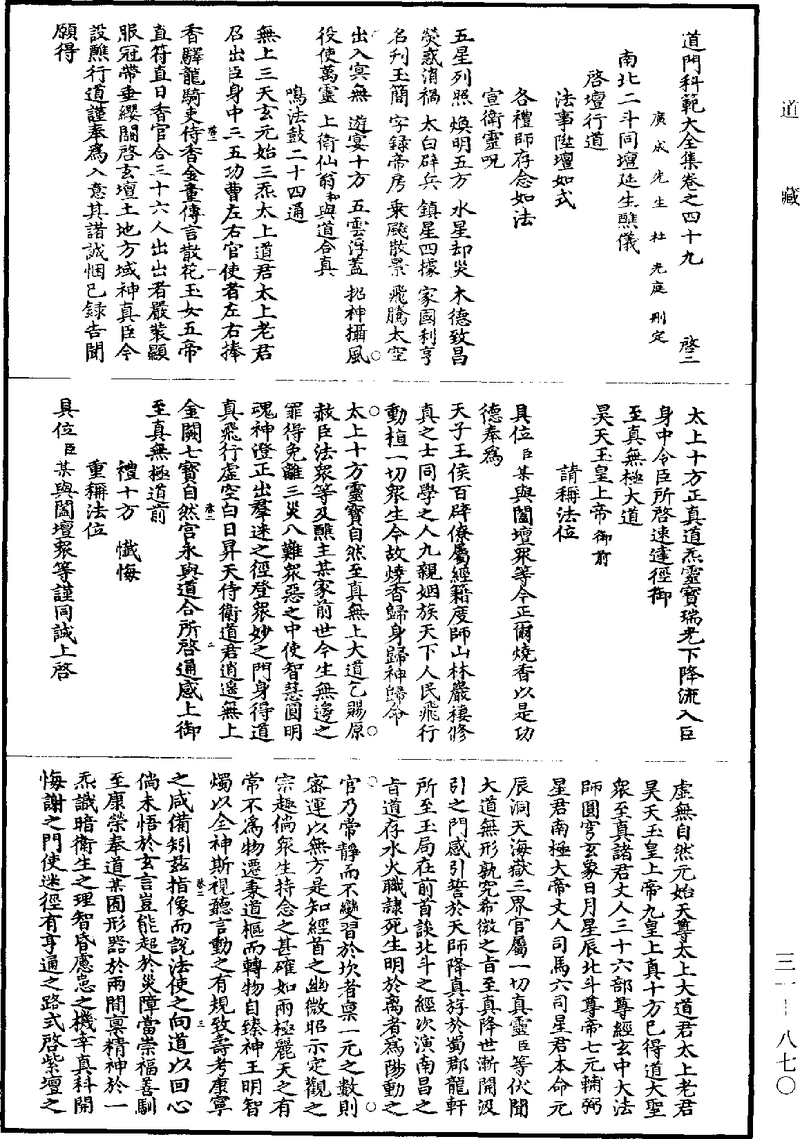 道藏
三一—八七〇
道門科範大全集卷之四十九 啓二
廣成先生杜光庭刪定
南北二斗同壇延生醮儀
啓壇行道
法事陞壇如式
各禮師存念如法
宣衛靈呪
五星列照 煥明五方 水星却災 木德致昌
熒惑消禍 太白辟兵 鎮星四據 家國利亨
名刊玉簡 字錄帝房 乘飈散景 飛騰太空
出入冥無 遊宴十方 五雲浮蓋 招神攝風
役使萬靈 上衛仙翁和與道合真
鳴法鼓二十四通
無上三天玄元始三炁太上道君太上老君
召出臣身中三五功曹左右官使者左右捧
香驛龍騎吏侍香金童傳言散花玉女五帝
直符直日香官合三十六人出出者嚴裝顯
服冠帶垂纓關啓玄壇土地方域神真臣今
設醮行道謹奉爲入意其諸誠悃已錄告聞
願得
太上十方正真道炁靈寶瑞光下降流入臣
身中令臣所啓速達徑御
至真無極大道
昊天玉皇上帝御前
請稱法位
具位臣某與闔壇衆等今正爾燒香以是功
德奉爲
天子王侯百辟僚屬經籍度師山林巖棲修
真之士同學之人九親姻族天下人民飛行
動植一切衆生今故燒香歸身歸神歸命
太上十方靈寶自然至真無上大道乞賜原
赦臣法衆等及醮主某家前世今生無邊之
罪得免離三災八難衆惡之中使智慧圓明
魂神澄正出羣迷之徑登衆妙之門身得道
真飛行虛空白日昇天侍衛道君逍遙無上
金闕七寶自然宮永與道合所啓通感上御
至真無極道前
禮十方 懺悔
重稱法位
具位臣某與闔壇衆等謹同誠上啓
虛無自然元始天尊太上大道君太上老君
昊天玉皇上帝九皇上真十方已得道大聖
衆至真諸君丈人三十六部尊經玄中大法
師圓穹玄象日月星辰北斗尊帝七元輔弼
星君南極大帝丈人司馬六司星君本命元
辰洞天海嶽三界官屬一切真靈臣等伏聞
大道無形孰究希微之旨至真降世漸開汲
引之門感引誓於天師降真游於蜀郡龍軒
所至玉局在前首談北斗之經次演南昌之
旨道存水火職隷死生明於离者爲陽動之
官乃常靜而不變習於坎者稟一元之數則
審運以無方是知經首之幽微昭示定觀之
宗趣倘衆生持念之甚確如兩極麗天之有
常不爲物遷秉道樞而轉物自臻神王明智
燭以全神斯視聽言動之有規致壽考康寧
之咸備矧茲指像而說法使之向道以回心
倘未悟於玄言豈能超於災障當崇福善馴
至康榮奉道某圓形器於兩間稟精神於一
炁識暗衛生之理智昏慮患之機幸真科開
悔謝之門使迷徑有亨通之路式啓紫壇之